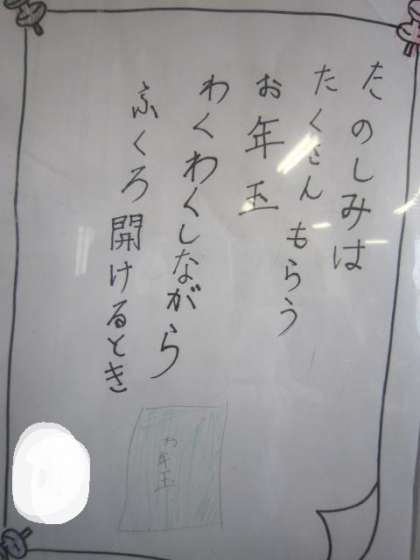 たのしみは
たくさんもらう
お年玉
わくわくしながら
ふくろ開けるとき
お年玉